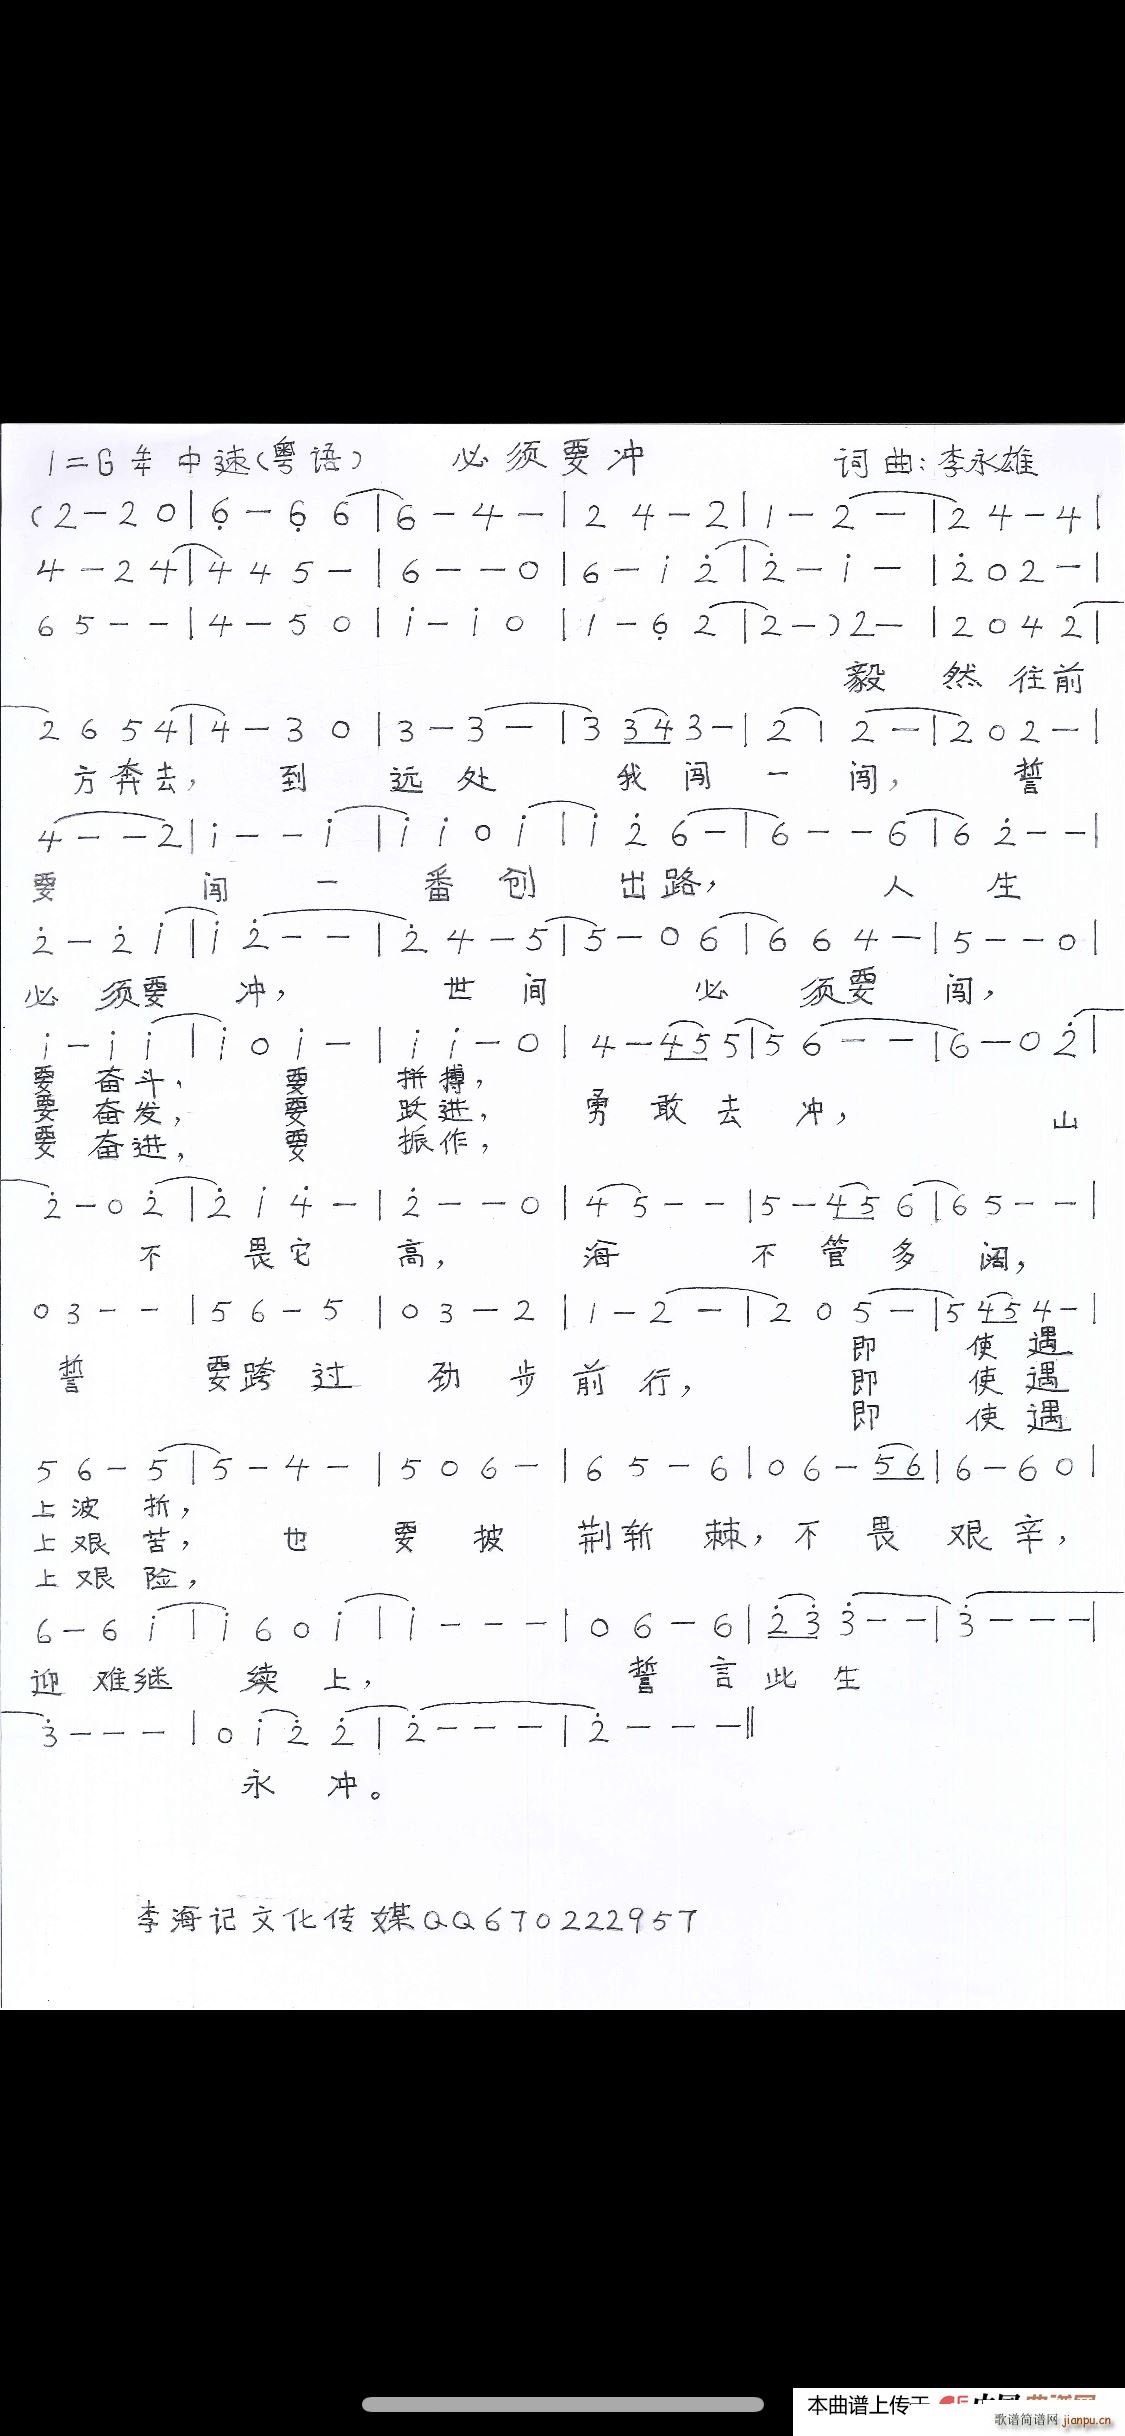 1=G 4/4 中速(粤语) 必须要冲 词曲:李永雄
(2-20|6̣-6̣6|6-4-|24-2|1-2-|24-4|
4-24|445-|6--0|6-i2̇|2̇-i-|2̇02-|
65--|4-50|i-i0|1-6̣2|2-)2-|2042|
毅然往前
2654|4-30|3-3-|3343-|212-|202-|
方奔去,到远处我闯一闯,誓
4--2|i--i|ii0i|i2̇6-|6--6|62̇--|
要闯一番创出路,人生
2̇-2̇i|i2̇--|2̇4-5|5-06|664-|5--0|
必须要冲,世间必须要闯,
i-ii|i0i-|ii-0|4-455|56--|6-02̇|
要奋斗,要拼搏,
要奋发,要跃进,勇敢去冲,山
要奋进,要振作,
2̇-02̇|2̇i4̇-|2̇--0|45--|5-456|65--|
不畏它高,海不管多阔,
03--|56-5|03-2|1-2-|205-|5454-|
即使遇
誓要跨过劲步前行,即使遇
即使遇
56-5|5-4-|506-|65-6|06-56|6-60|
上波折,
上艰苦,也要披荆斩棘,不畏艰辛,
上艰险,
6-6i|i60i|i---|06-6|2̇3̇3̇--|3̇---|
迎难继续上,誓言此生
3̇---|0i2̇2̇|2̇---|2̇---‖
永冲。
李海记文化传媒QQ670222957
本曲谱上传于
歌谱简谱网 jianpu.cn